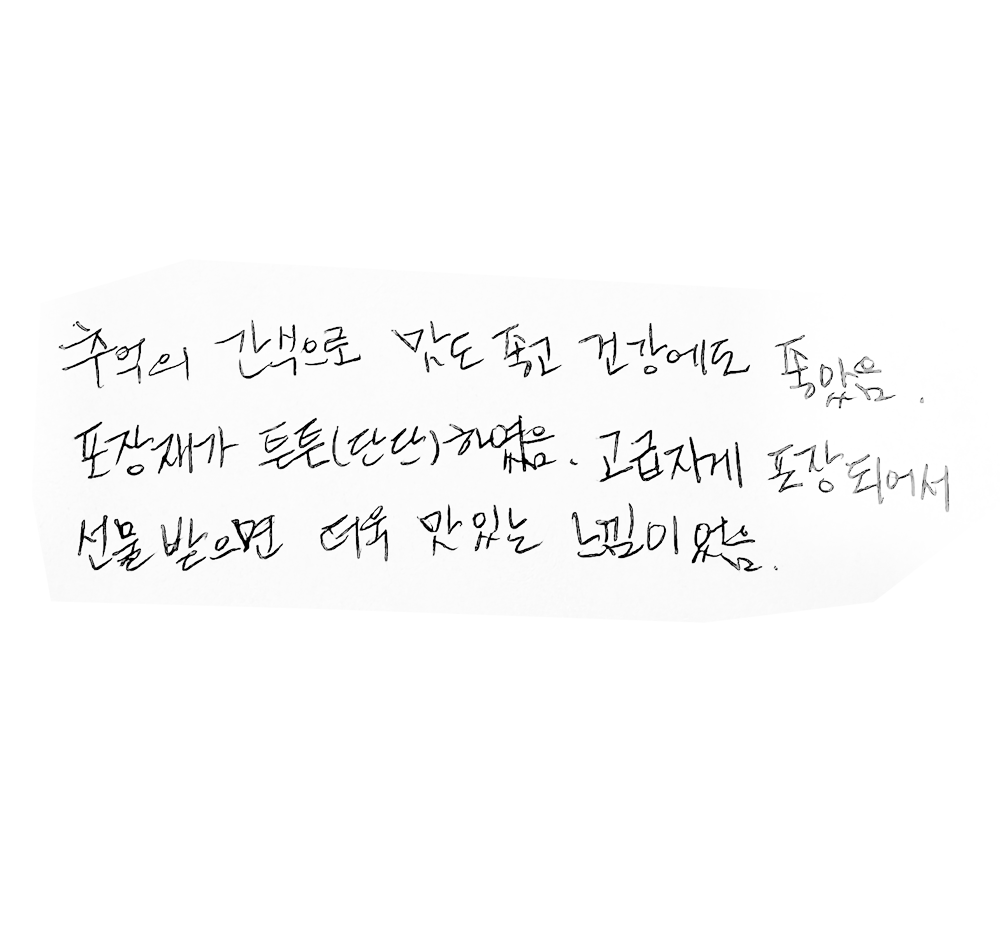 추억의 간식으로 맘도 좋고 건강에도 좋았음.
포장재가 튼튼(단단)하였음. 고급지게 포장되어서
선물받으면 더욱 맛있는 느낌이었음.